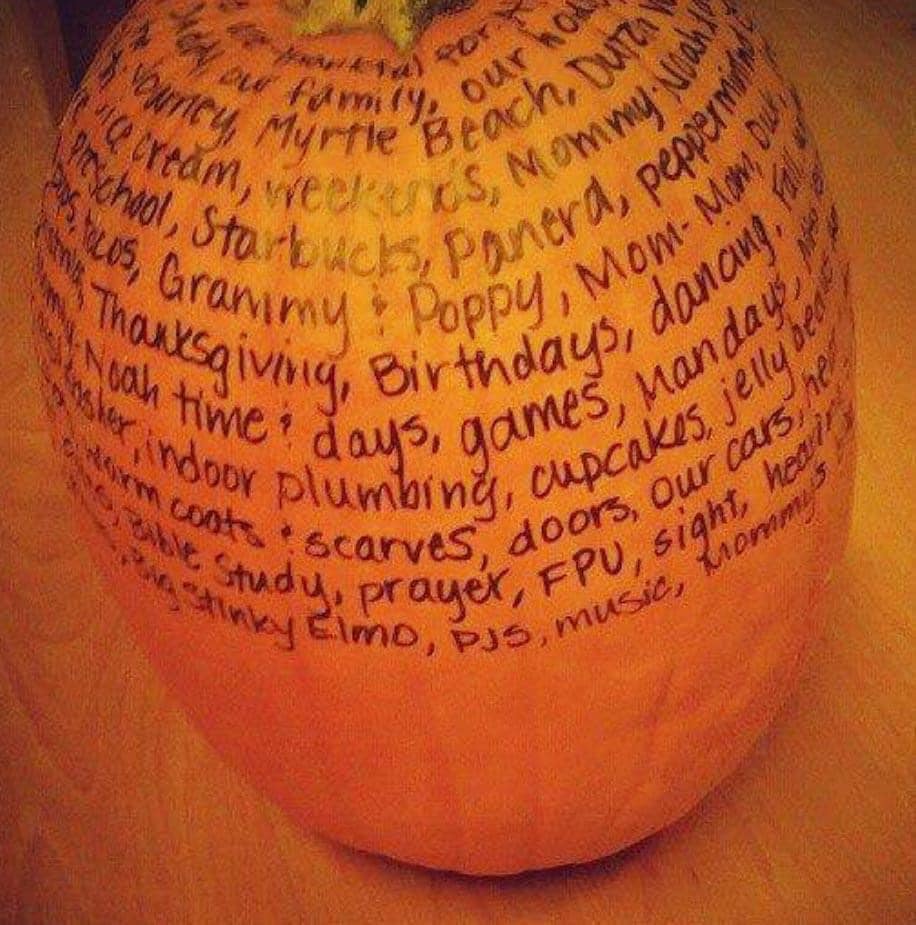 thankful for
our family, our
Journey, Myrtle Beach, Dutch
ice cream, weekends, Mommy Noah
Preschool, Starbucks, Panera, peppermint
tacos, Grammy & Poppy, Mom-Mom,
Thanksgiving, Birthdays, dancing, Fall
Noah time & days, games, Mandays,
indoor plumbing, cupcakes, jelly
warm coats & scarves, doors, our cars,
Bible study, prayer, FPU, sight,
Big Stinky Elmo, PJS, music, Mommy's